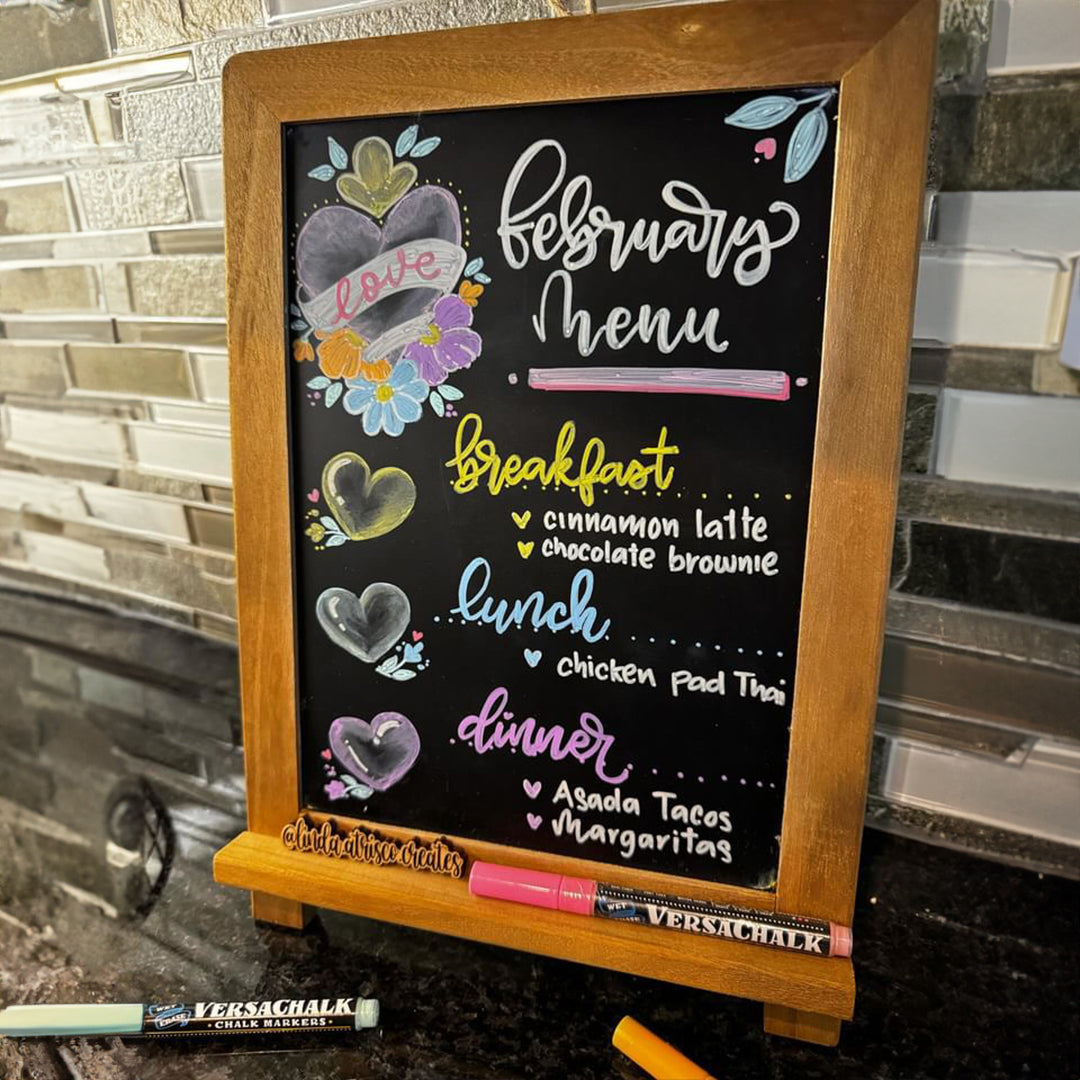 love
february
Menu
breakfast
cinnamon latte
chocolate brownie
lunch
chicken pad Thai
dinner
Asada Tacos
Margaritas
@linda.atrisco.creates
WET ERASE VERSACHALK
WET ERASE VERSACHALK
CHALK MARKERS